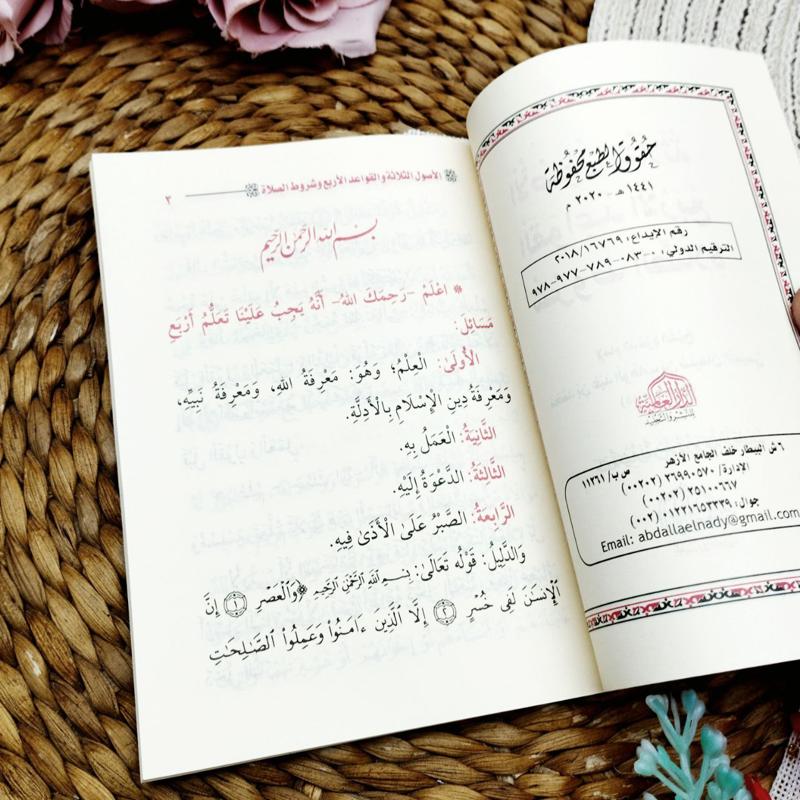 حُقُوقُ الطَّبْعِ مَحْفُوظَةٌ
١٤٤١ هـ - ٢٠٢٠ م
رقم الإيداع: ٢٠١٨/١٦٧٦٩
الترقيم الدولي: ٠-٠٨٣-٧٨٩-٩٧٧-٩٧٨
الدار العالمية
للنشر والتجليد
٦ ش البيطار خلف الجامع الأزهر
الإدارة/ ٢٦٩٩٠٥٧٠ (٠٠٢٠٢) ص ب/ ١١٣٦١
٢٥١٠٠٦٦٧ (٠٠٢٠٢)
جوال: ٠١٢٢١٦٥٣٣٣٩ (٠٠٢)
Email: abdallaelnady@gmail.com
الأصول الثلاثة والقواعد الأربع وشروط الصلاة ٣
بسم الله الرحمن الرحيم
* اعْلَمْ -رَحِمَكَ اللهُ- أَنَّهُ يَجِبُ عَلَيْنَا تَعَلُّمُ أَرْبَعِ
مَسَائِلَ:
الْأُولَىٰ: الْعِلْمُ؛ وَهُوَ: مَعْرِفَةُ اللهِ، وَمَعْرِفَةُ نَبِيِّهِ،
وَمَعْرِفَةُ دِينِ الْإِسْلَامِ بِالْأَدِلَّةِ.
الثَّانِيَةُ: الْعَمَلُ بِهِ.
الثَّالِثَةُ: الدَّعْوَةُ إِلَيْهِ.
الرَّابِعَةُ: الصَّبْرُ عَلَىٰ الْأَذَىٰ فِيهِ.
وَالدَّلِيلُ: قَوْلُهُ تَعَالَىٰ: بِسْمِ اللهِ الرَّحْمَٰنِ الرَّحِيمِ ﴿وَٱلْعَصْرِ ۝١ إِنَّ
ٱلْإِنسَٰنَ لَفِى خُسْرٍ ۝٢ إِلَّا ٱلَّذِينَ ءَامَنُوا۟ وَعَمِلُوا۟ ٱلصَّٰلِحَٰتِ